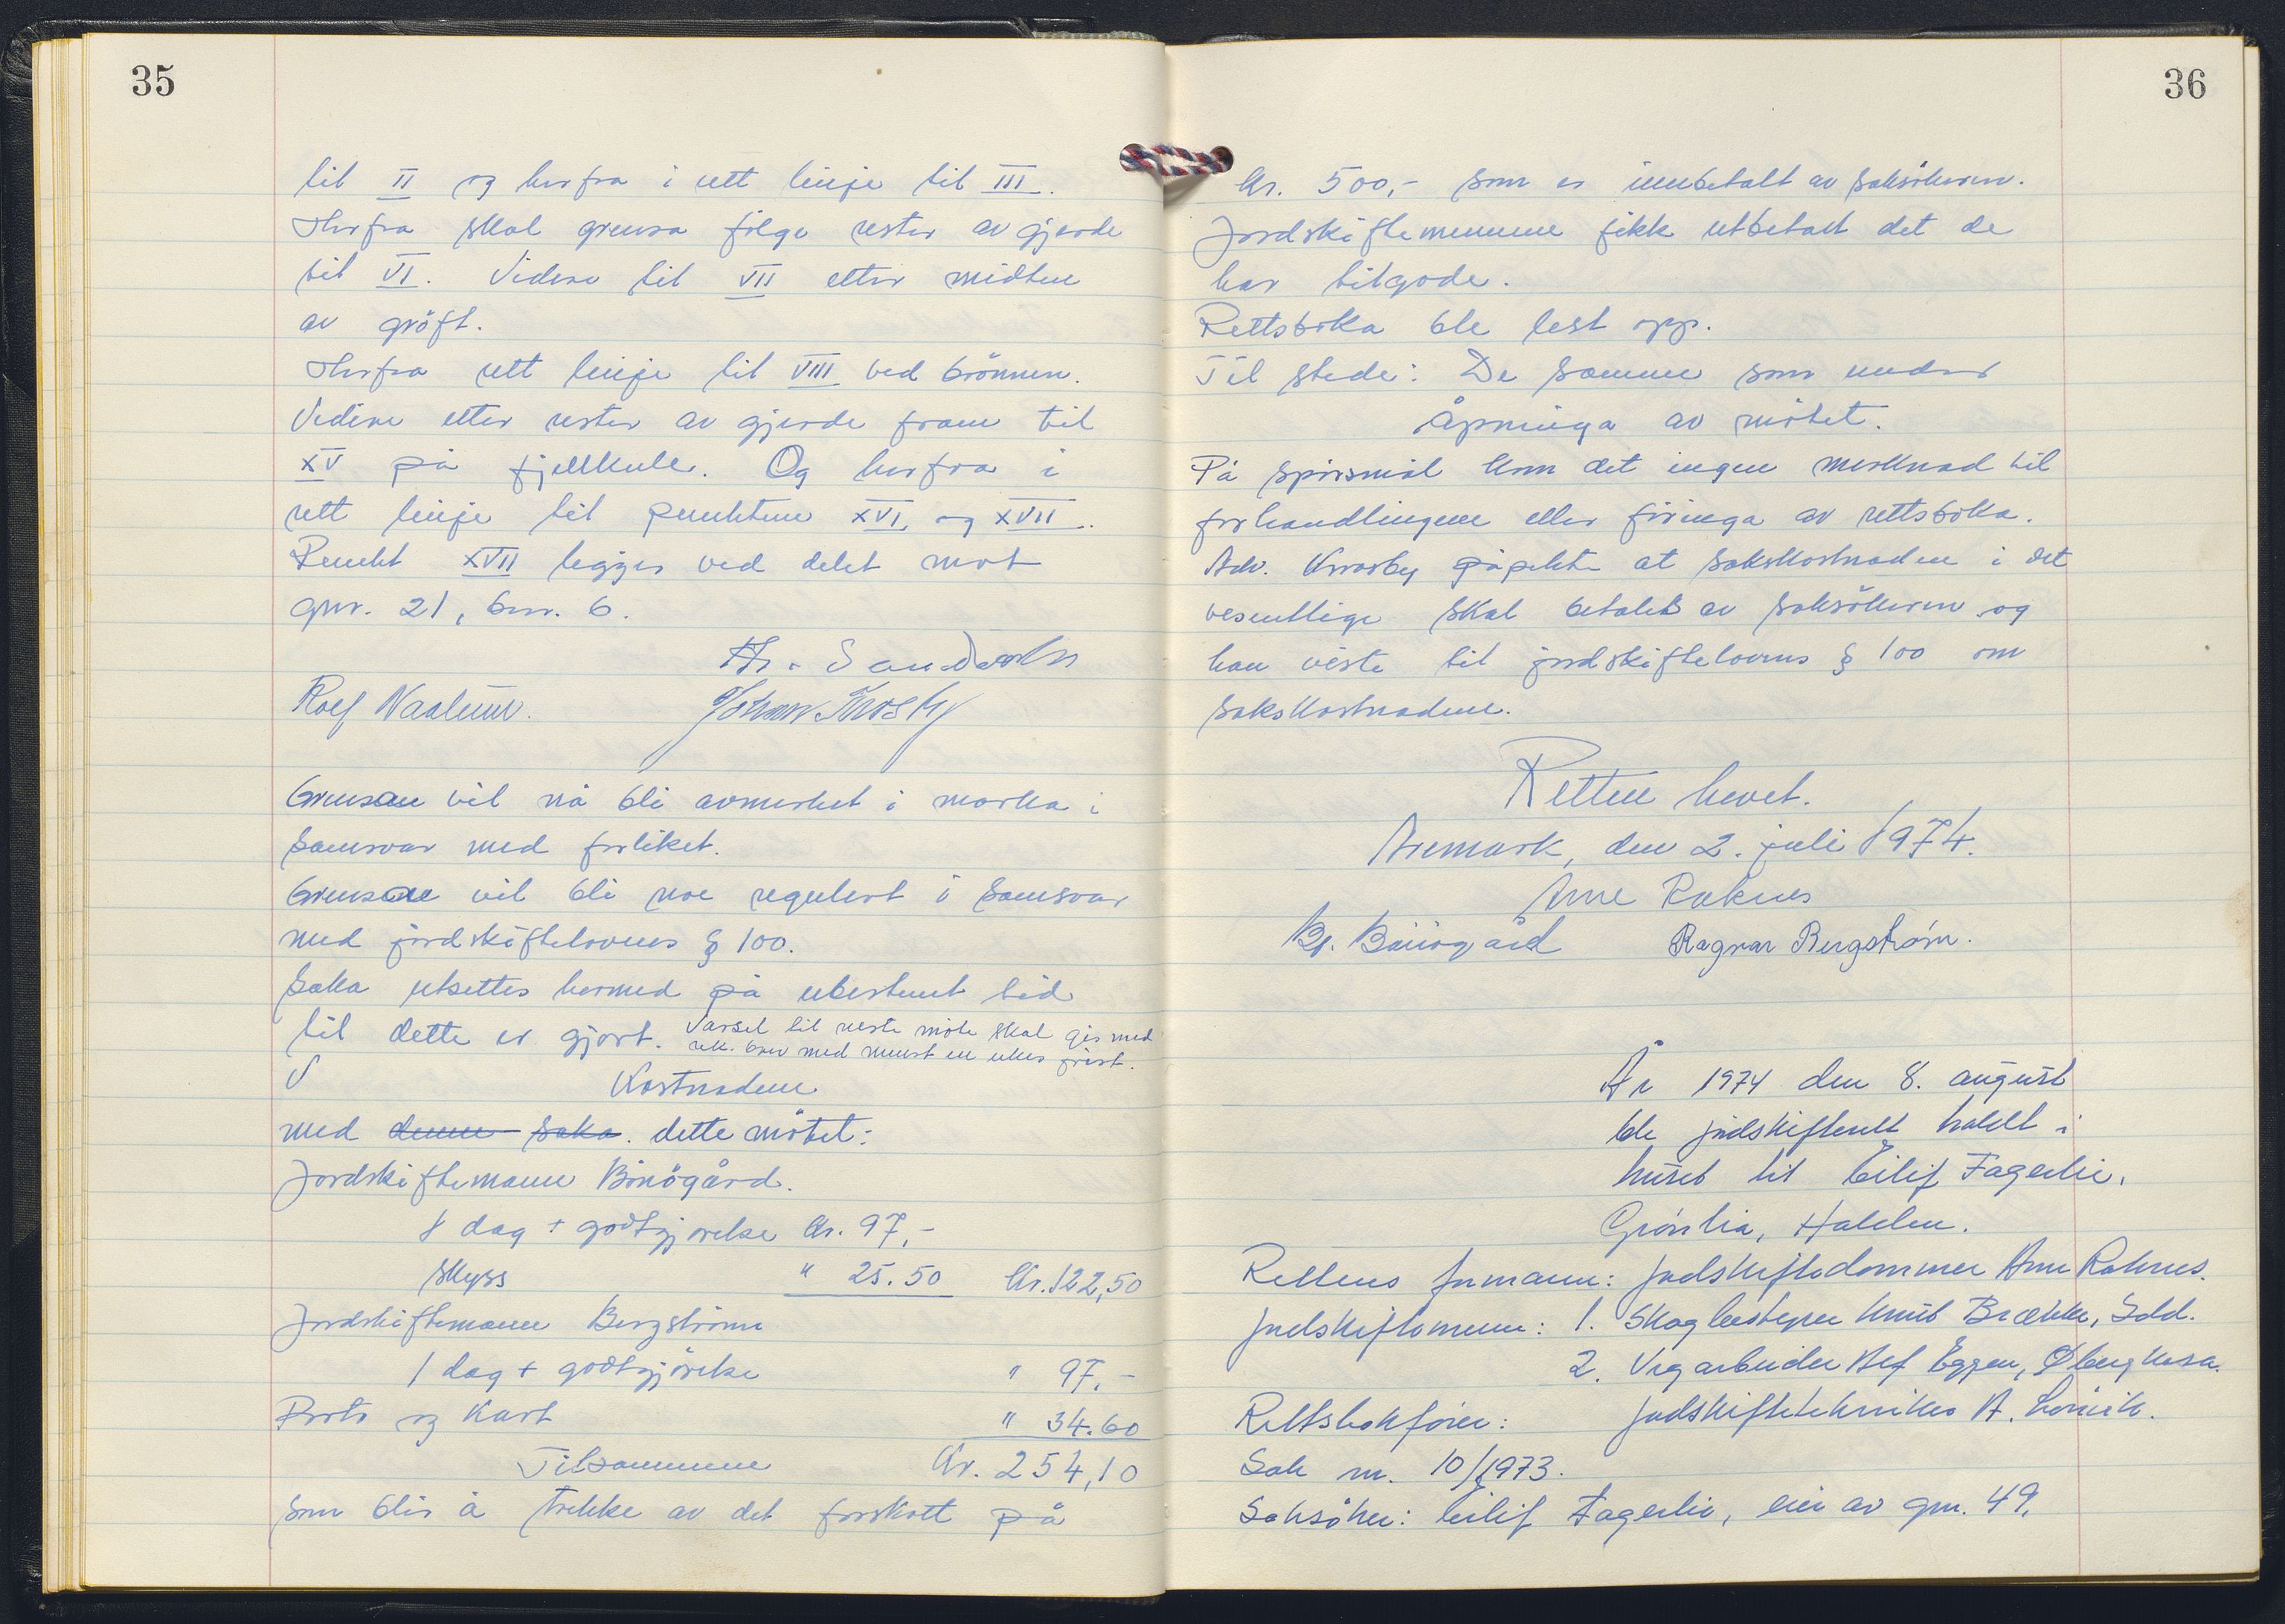 35
til II og herfra i rett linje til III.
Herfra skal grensa følge rester av gjerde
til VI. Videre til VII etter midten
av gröft.
Herfra rett linje til VIII ved brönnen.
Videre etter rester av gjerde fram til
XV på fjellkulle. Og herfra i
rett linje til punktene XVI og XVII.
Punkt XVII legges ved delet mot
gnr. 21, bnr. 6.
Rolf Naalum.
Grensene vil nå bli avmerket i marka i
samsvar med forliket.
Grensene vil bli noe regulert i samsvar
med jordskiftelovens § 100.
Saka utsettes hermed på ubestemt tid
til dette er gjort. Varsel til neste möte skal gis med
rek. brev med minst en ukes frist.
Kostnadene
med denne saka. dette mötet:
Jordskiftemann Binögård.
1 dag + godtgjörelse kr. 97,-
Skyss " 25.50 Kr. 122,50
Jordskiftemann Bergström
1 dag + godtgjörelse " 97,-
Porto og kart " 34.60
Tilsammen kr. 254,10
som blir å trekke av det forskott på
36
kr. 500,- som er innbetalt av saksökeren.
Jordskiftemennene fikk utbetalt det de
har tilgode.
Rettsboka ble lest opp.
Til stede: De samme som under
åpninga av mötet.
På spörsmål kom det ingen merknad til
forhandlingene eller föringa av rettsboka.
Adv. påpekte at sakskostnadene i det
vesentlige skal betales av saksökeren og
han viste til jordskiftelovens § 100 om
sakskostnadene.
Retten hevet.
Aremark, den 2. juli 1974.
Arne Raknes
Ragnar Bergstrøm.
År 1974 den 8. august
ble jordskifterett holdt i
huset til Eilif Fagerlie,
Grönlia, Halden.
Rettens formann: Jordskiftedommer Arne Raknes.
Jordskiftemenn: 1. Skogbestyrer Knut Brække, Idd.
2. Vegarbeider Alf Eggen, Øbergkosa.
Rettsbokförer: Jordskiftetekniker A.
Sak nr. 10/1973.
Saksöker: Eilif Fagerlie, eier av gnr. 49,